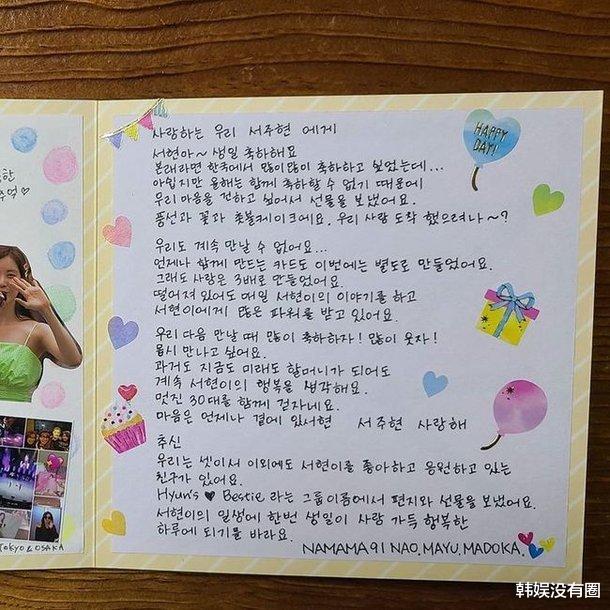 한
추억♡
TOKYO & OSAKA
HAPPY
DAY!
사랑하는 우리 서주현 에게
서현아~ 생일 축하해요
본래라면 한국에서 많이많이 축하하고 싶었는데...
아쉽지만 올해는 함께 축하할 수 없기 때문에
우리 마음을 전하고 싶어서 선물을 보냈어요.
풍선과 꽃과 촛불케이크에요. 우리 사랑 도착 했으려나~?
우리도 계속 만날 수 없어요...
언제나 함께 만드는 카드도 이번에는 별도로 만들었어요.
그래도 사랑은 3배로 만들었어요.
떨어져 있어도 매일 서현이의 이야기를 하고
서현이에게 많은 파워를 받고 있어요.
우리 다음 만날 때 많이 축하하자! 많이 웃자!
몹시 만나고 싶어요.
과거도 지금도 미래도 할머니가 되어도
계속 서현이의 행복을 생각해요.
멋진 30대를 함께 걷자네요.
마음은 언제나 곁에 있서현 서주현 사랑해
추신
우리는 셋이서 이외에도 서현이를 좋아하고 응원하고 있는
친구가 있어요.
Hyun's ♥ Bestie 라는 그룹이름에서 편지와 선물을 보냈어요.
서현이의 일생에 한번 생일이 사랑 가득 행복한
하루에 되기를 바라요.
NAMAMA91 NAO.MAYU.MADOKA.
韩娱没有圈